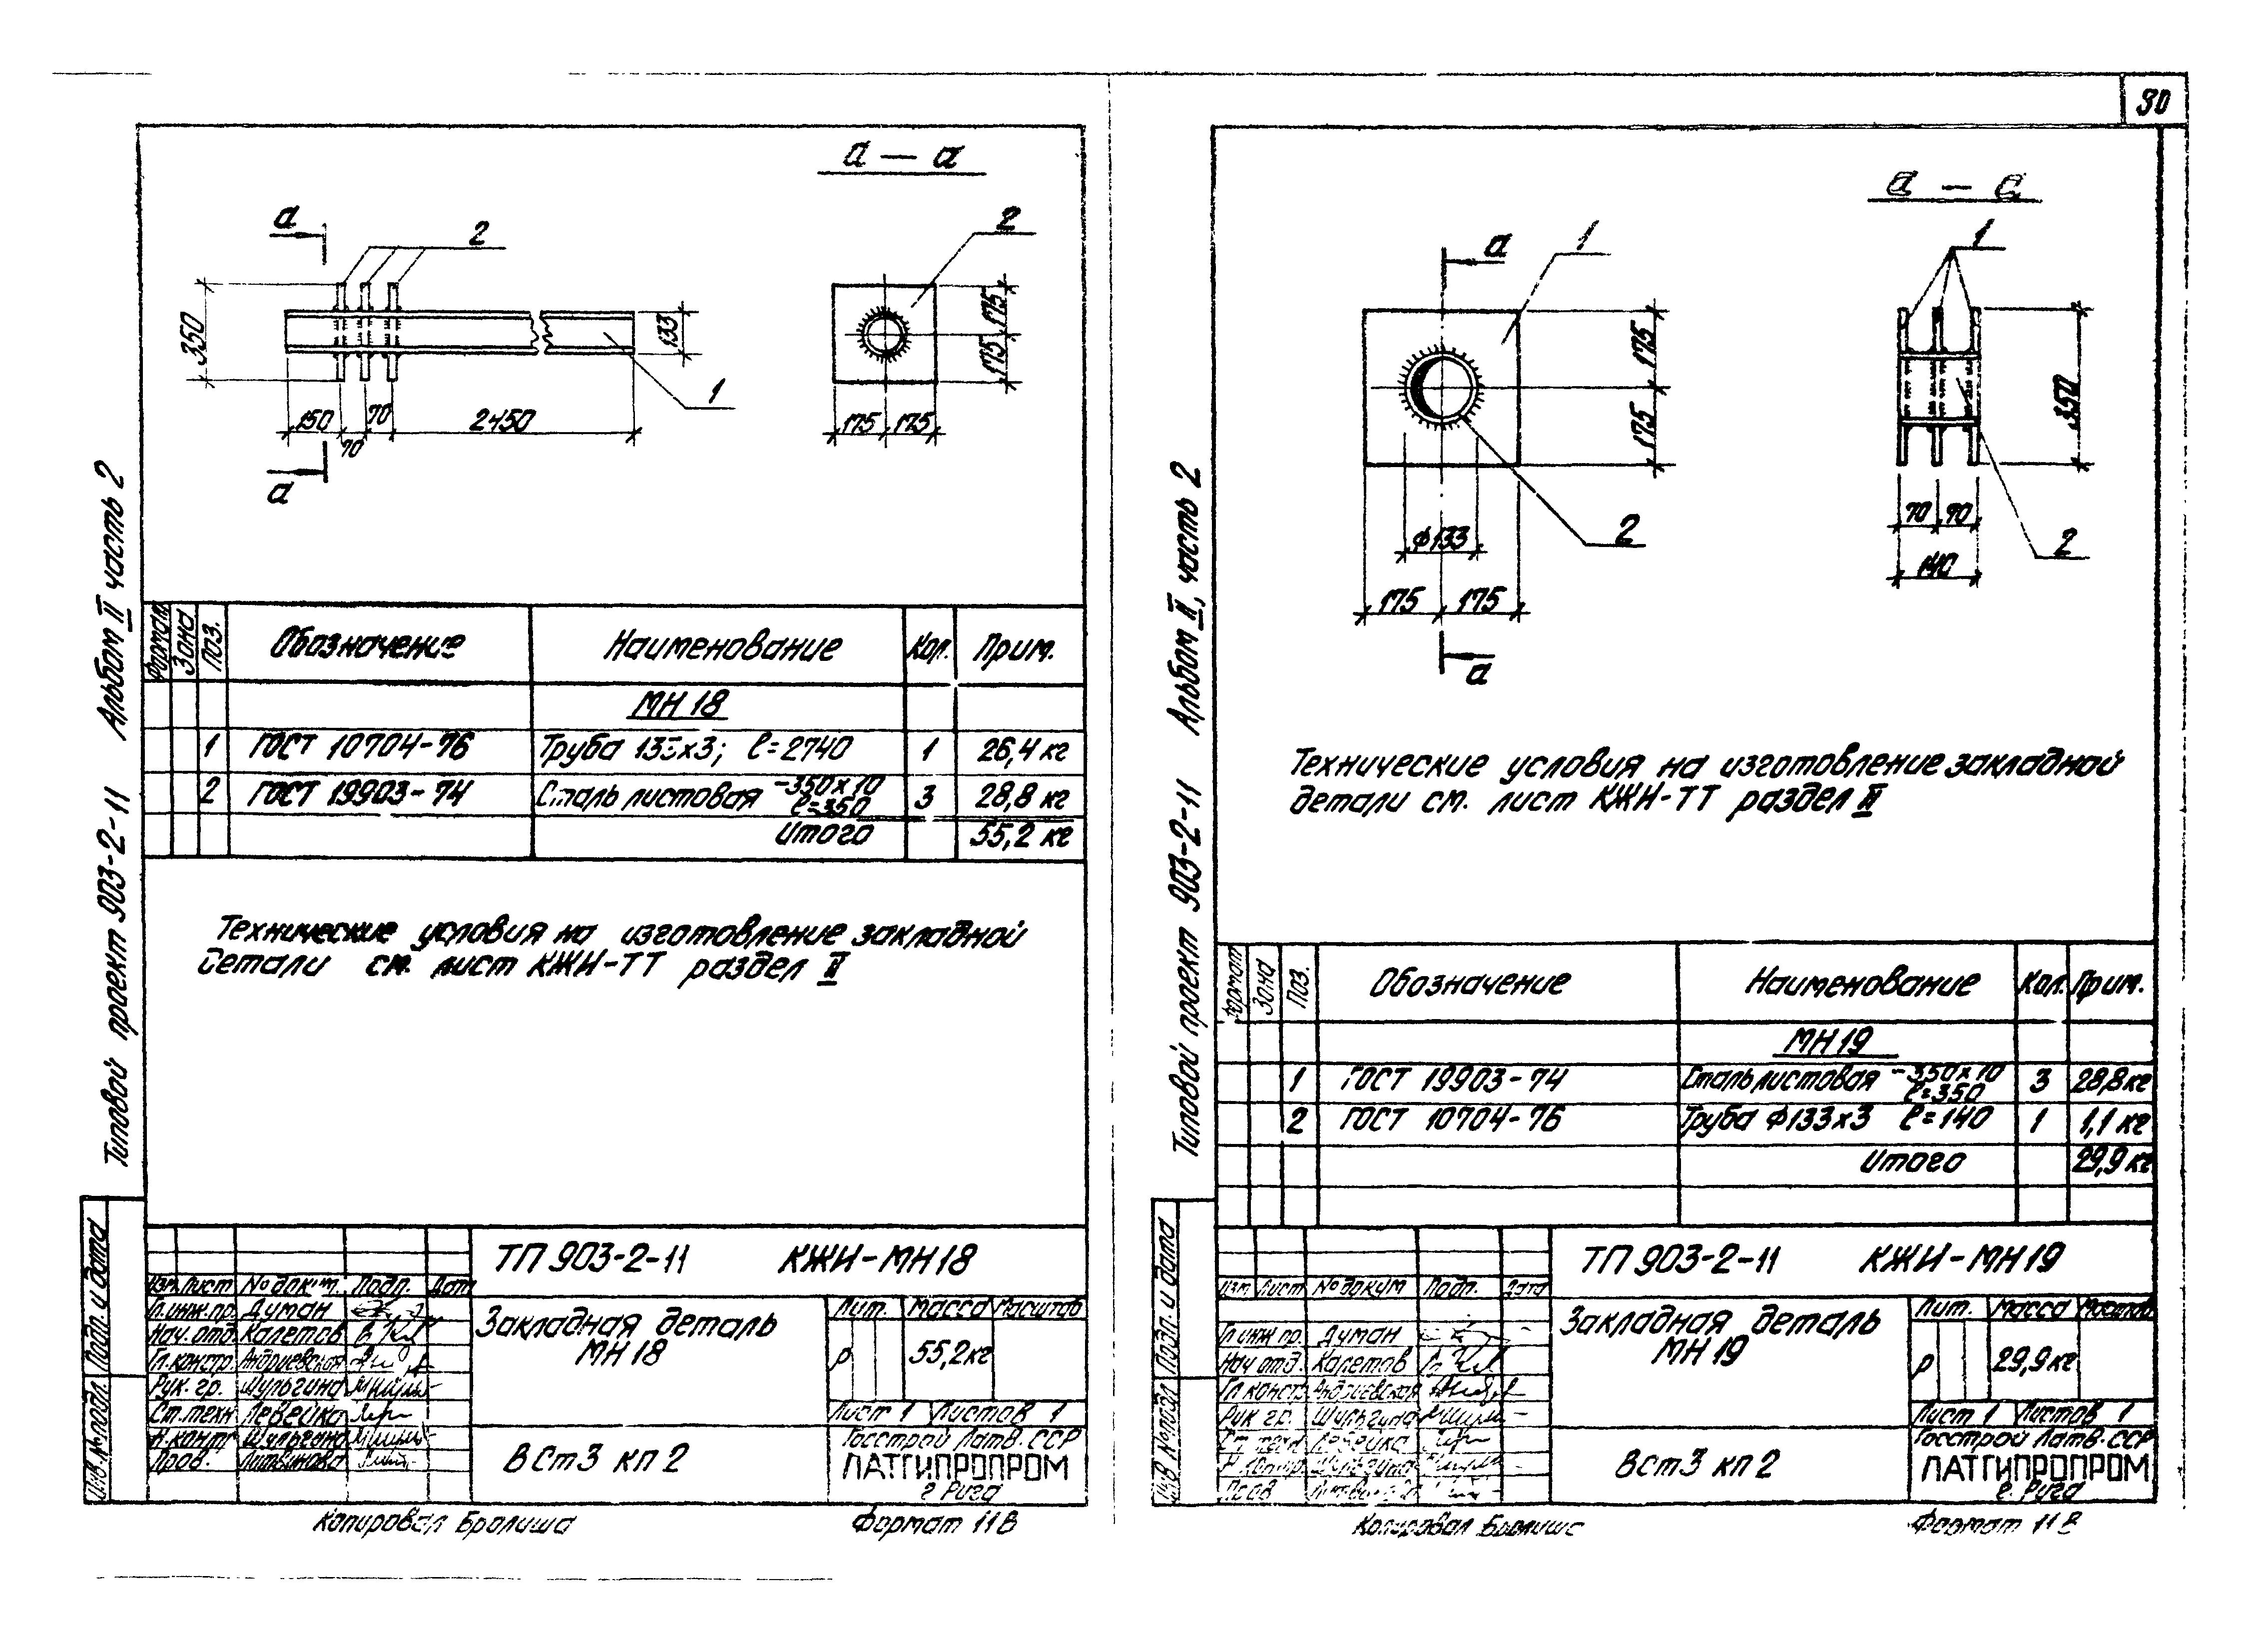 90
а — а
а
2
350
133
1
150
70
70
2450
а
2
175
175
175
175
Альбом II часть 2
Типовой проект 903-2-11
Формат
Зона
Поз.
Обозначение
Наименование
Кол.
Прим.
МН 18
1 ГОСТ 10704-76 Труба 133х3; ℓ=2740 1 26,4 кг
2 ГОСТ 19903-74 Сталь листовая -350х10 ℓ=350 3 28,8 кг
Итого 55,2 кг
Технические условия на изготовление закладной
детали см. лист КЖИ-ТТ раздел II
Подп. и дата
Инв.№подл.
ТП 903-2-11 КЖИ-МН 18
Изм. Лист № докум. Подп. Дат
Гл.инж.пр. Думан
Нач.отд. Калетов
Гл.констр. Андриевская
Рук. гр. Шульгина
Ст.техн Левейко
Н.контр Шульгина
Пров. Литвинова
Закладная деталь
МН 18
Лит. Масса Масштаб
р 55,2кг
Лист 1 Листов 1
ВСт3 кп 2
Госстрой Латв.ССР
ЛАТГИПРОПРОМ
г Рига
Копировал Бралиша
Формат 11В
а — а
а
1
175
175
2
ф133
175
175
а
1
350
70
70
140
2
Альбом II, часть 2
Типовой проект 903-2-11
Технические условия на изготовление закладной
детали см. лист КЖИ-ТТ раздел II
Формат
Зона
Поз.
Обозначение
Наименование
Кол.
Прим.
МН 19
1 ГОСТ 19903-74 Сталь листовая -350х10 ℓ=350 3 28,8кг
2 ГОСТ 10704-76 Труба ф133х3 ℓ=140 1 1,1 кг
Итого 29,9 кг
Подп. и дата
Инв №подл
ТП 903-2-11 КЖИ-МН 19
Изм Лист № докум Подп. Дата
Гл инж пр. Думан
Нач отд. Калетов
Гл констр Андриевская
Рук гр. Шульгина
Ст. техн. Левейко
Н контр Шульгина
Пров Литвинова
Закладная деталь
МН 19
Лит. Масса Масштаб
р 29,9кг
Лист 1 Листов 1
ВСт3 кп 2
Госстрой Латв.ССР
ЛАТГИПРОПРОМ
г. Рига
Копировал Бралиша
Формат 11В